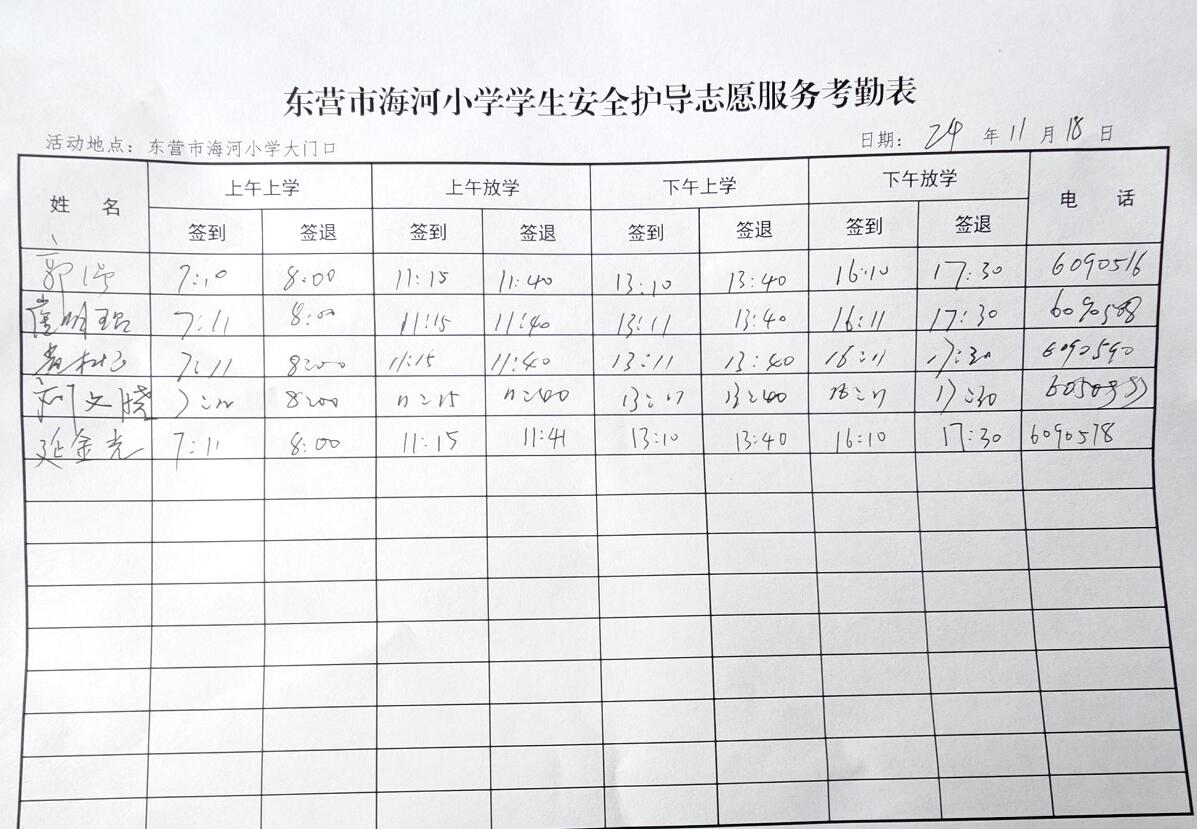 东营市海河小学学生安全护导志愿服务考勤表
活动地点：东营市海河小学大门口 日期：24年11月18日
姓名 上午上学 上午放学 下午上学 下午放学 电话
签到 签退 签到 签退 签到 签退 签到 签退
郭 7:10 8:00 11:15 11:40 13:10 13:40 16:10 17:30 6090516
7:11 8:00 11:15 11:40 13:11 13:40 16:11 17:30 6090508
7:11 8:00 11:15 11:40 13:11 13:40 16:11 17:30 6090590
刘文晓 8:00 11:15 11:40 13:11 13:40 16:11 17:30
延金光 7:11 8:00 11:15 11:41 13:10 13:40 16:10 17:30 6090578